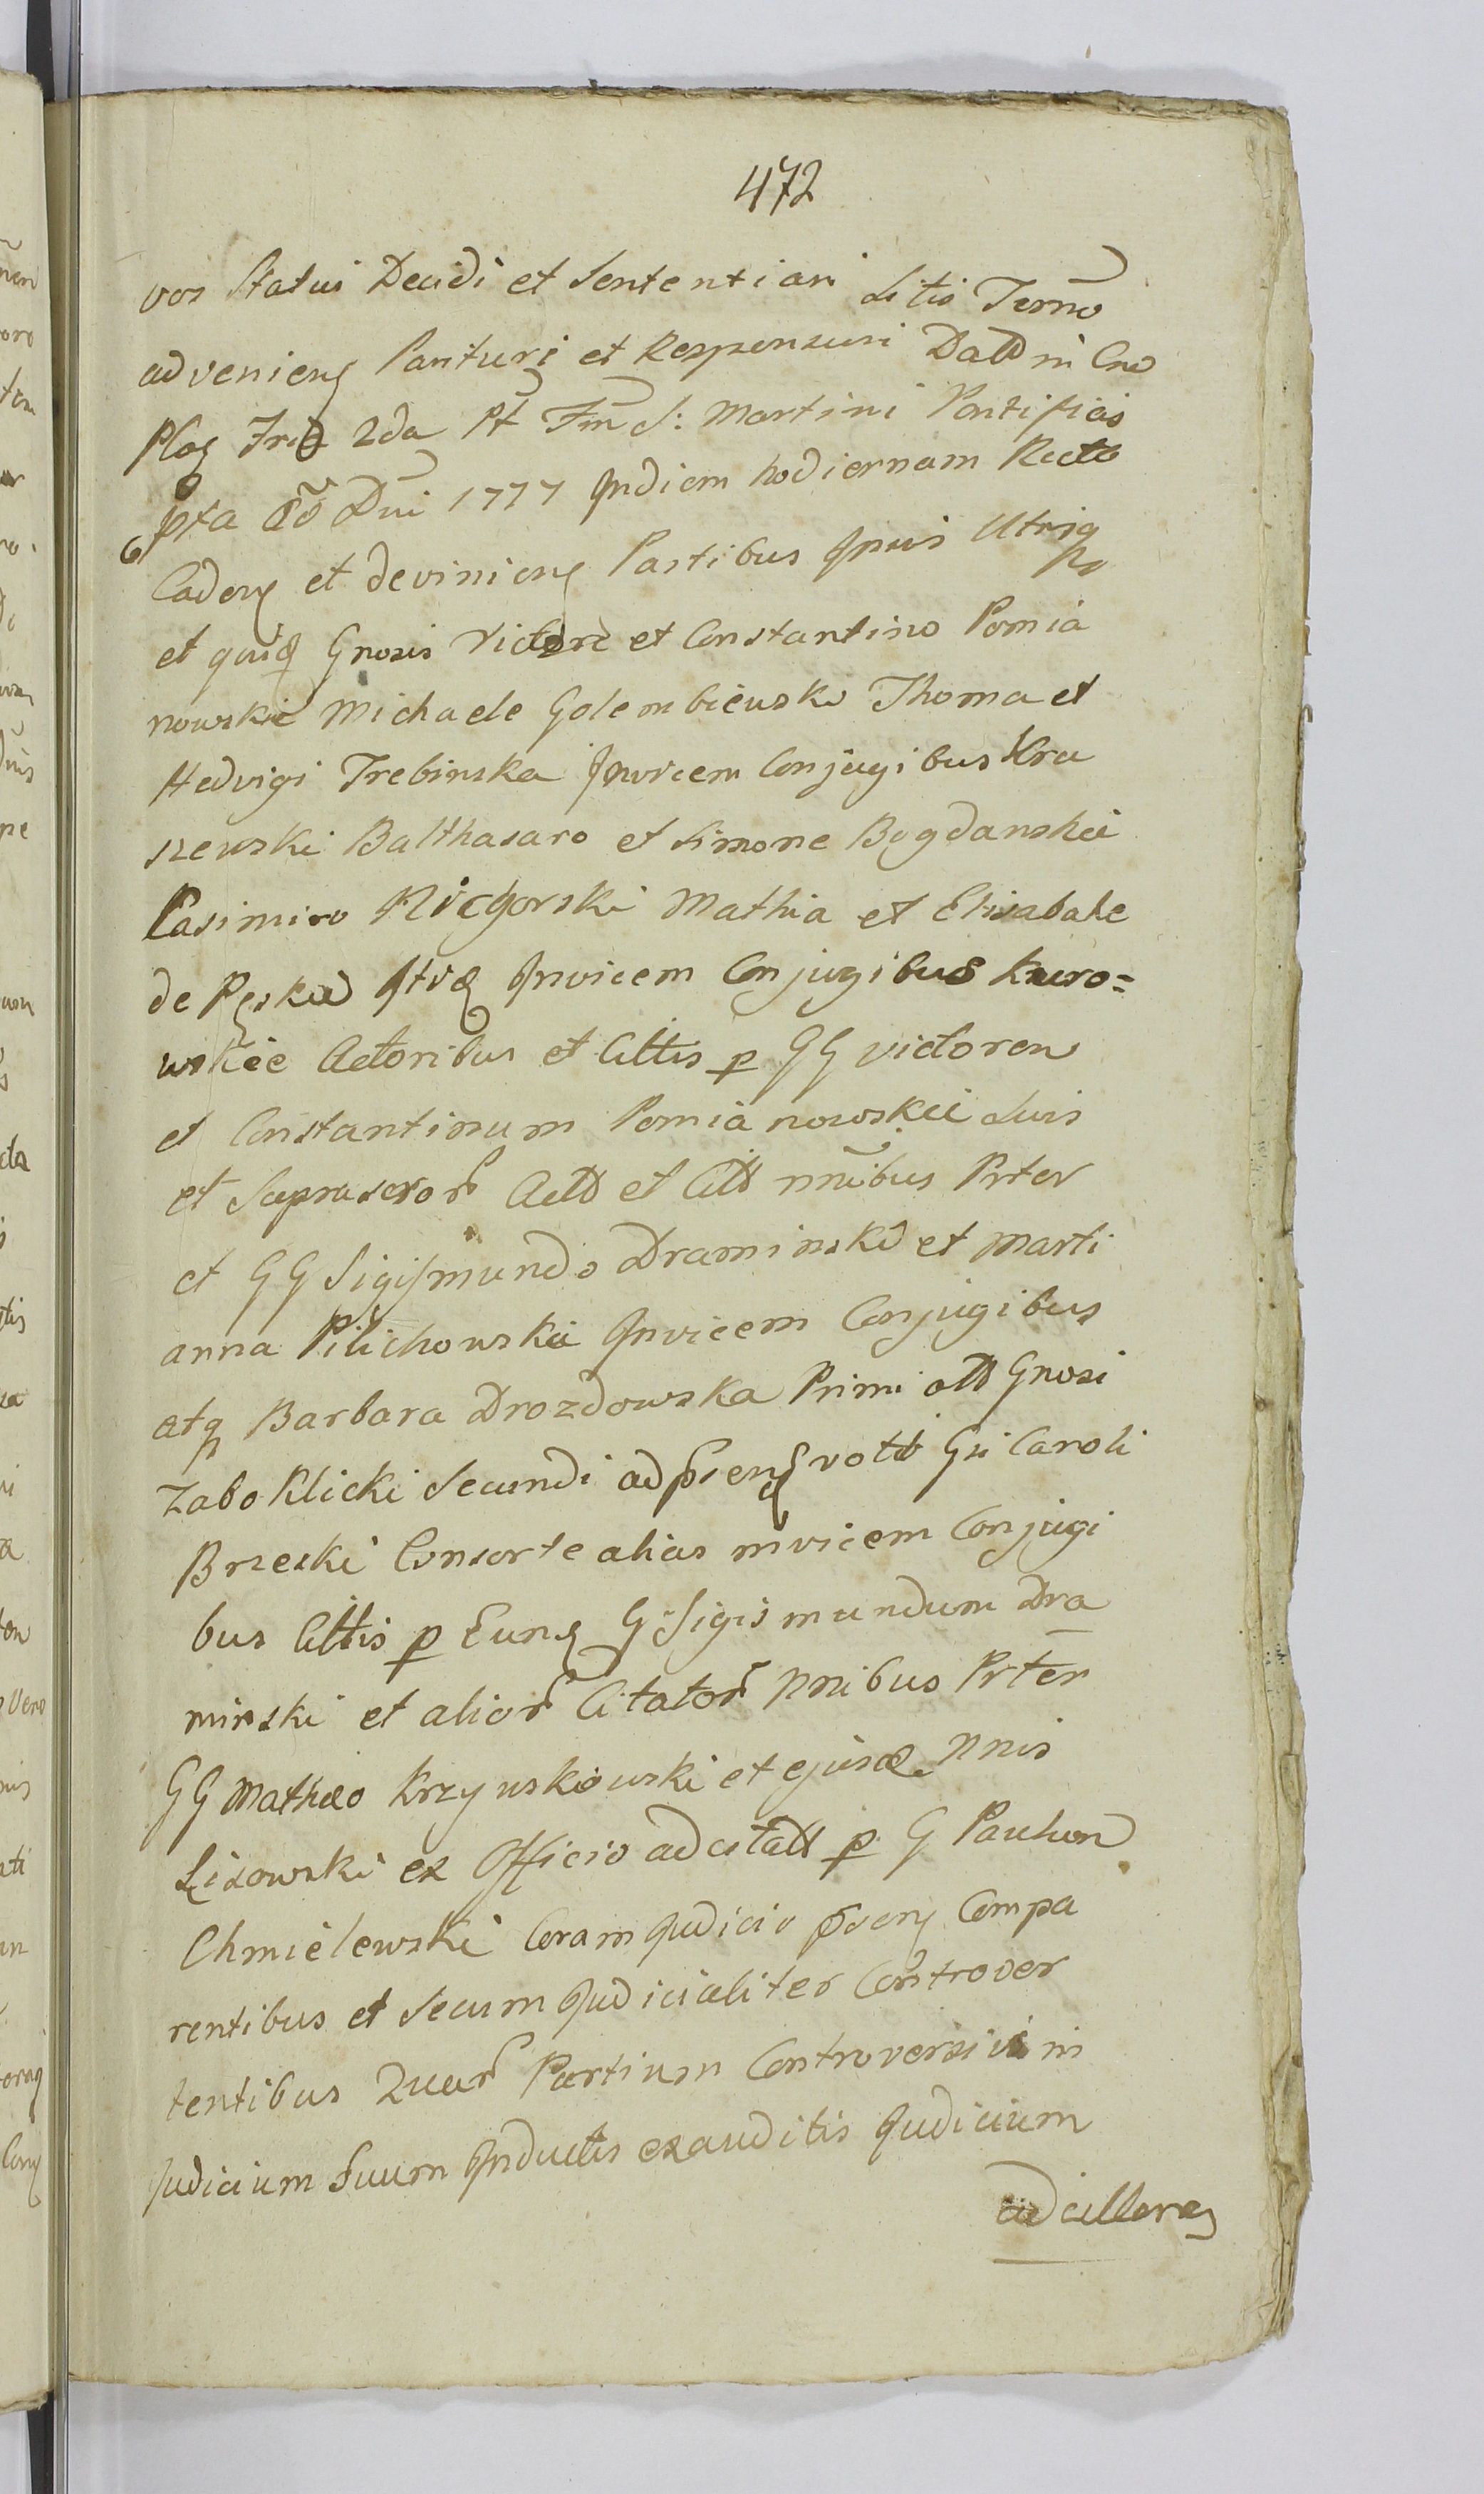 472
vos Statui Decidi et Sententiari Litis Termo
adveniens Parituri et Responsuri Datt in Cno
Plog Fria 2da Pt Fm S: Martini Pontificis
pta Ao Dni 1777 Indiem hodiernam Recte
Cadens et deviniens Partibus Ipsis Utrisq
et quidq Gnosis Victore et Constantino Pomia
nowskie Michaele Golembiewski Thoma et
Hedvigi Trebinska Invicem Conjugibus Kra
szewski Balthasaro et Simone Bogdanskii
Casimiro Nicgorski Mathia et Elisabahe
de Pęskie Invicem Conjugibus Kuro=
wskie Actoribus et Cittis p GG Victorem
et Constantinum Pomianowskie Suis
et Suprascror Actt et Citt nnibus Prter
et GG Sigismundo Draminski et Marti
anna Pilichowskie Invicem Conjugibus
atq Barbara Drozdowska Primi ott Gnosi
Zaboklicki Secundi adpsens votti Gsi Caroli
Brzeski Consorte alias invicem Conjugi
bus Cittis p Eunq G Sigismundum Dra
minski et alior Citator Nnibus Prter
GG Matheo Krzywskowski et ejusd Nnis
Lisowski ex Officio adcitatt p G Paulum
Chmielewski Coram Judicio Compa
rentibus et Secum Judicialiter Controver
tentibus Quar Partium Controversiis in
Judicium Suum Inductis exauditis Judicium